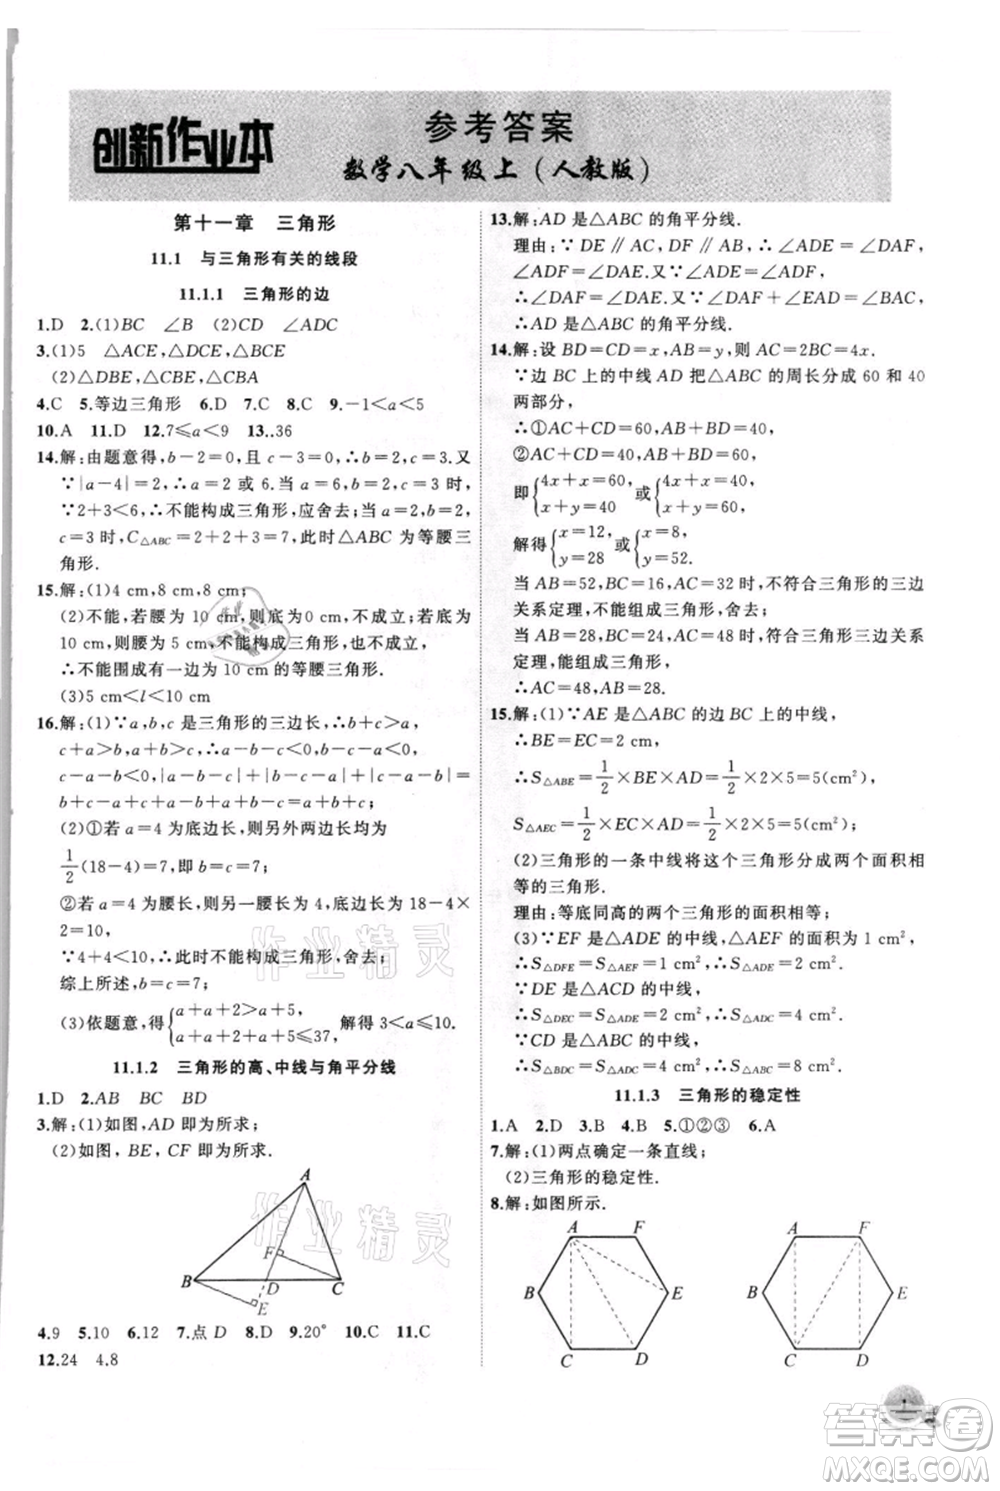 创新作业本
参考答案
数学八年级上(人教版)
第十一章 三角形
11.1 与三角形有关的线段
11.1.1 三角形的边
1.D 2.(1)BC ∠B (2)CD ∠ADC
3.(1)5 △ACE,△DCE,△BCE
(2)△DBE,△CBE,△CBA
4.C 5.等边三角形 6.D 7.C 8.C 9.-1<a<5
10.A 11.D 12.7≤a<9 13..36
14.解:由题意得,b-2=0,且 c-3=0,∴b=2,c=3.又
∵|a-4|=2,∴a=2 或 6.当 a=6,b=2,c=3 时,
∵2+3<6,∴不能构成三角形,应舍去;当 a=2,b=2,
c=3 时,C△ABC=2+2+3=7,此时△ABC 为等腰三
角形.
15.解:(1)4 cm,8 cm,8 cm;
(2)不能,若腰为 10 cm,则底为 0 cm,不成立;若底为
10 cm,则腰为 5 cm,不能构成三角形,不成立;
∴不能围成有一边为 10 cm 的等腰三角形;
(3)5 cm<l<10 cm
16.解:(1)∵a,b,c 是三角形的三边长,∴b+c>a,
c+a>b,a+b>c,∴a-b-c<0,b-c-a<0,
c-a-b<0,∴|a-b-c|+|b-c-a|+|c-a-b|=
b+c-a+c+a-b+a+b-c=a+b+c;
(2)①若 a=4 为底边长,则另外两边长均为
1/2(18-4)=7,即 b=c=7;
②若 a=4 为腰长,则有一腰长为 4,底边长为 18-4×
2=10,
∵4+4<10,∴此时不能构成三角形,舍去;
综上所述,b=c=7;
(3)依题意,得{a+a+2>a+5, a+a+2+a+5≤37, 解得 3<a≤10.
11.1.2 三角形的高、中线与角平分线
1.D 2.AB BC BD
3.解:(1)如图,AD 即为所求;
(2)如图,BE,CF 即为所求.
A
F
B
D
C
E
4.9 5.10 6.12 7.点 D 8.D 9.20° 10.C 11.C
12.24 4.8
13.解:AD 是△ABC 的角平分线.
理由:∵DE∥AC,DF∥AB,∴∠ADE=∠DAF,
∠ADF=∠DAE.又∵∠ADE=∠ADF,
∴∠DAF=∠DAE.又∵∠DAF+∠DAE=∠BAC,
∴AD 是△ABC 的角平分线.
14.解:设 BD=CD=x,AB=y,则 AC=2BC=4x.
∵边 BC 上的中线 AD 把△ABC 的周长分成 60 和 40
两部分,
∴①AC+CD=60,AB+BD=40,
②AC+CD=40,AB+BD=60,
即{4x+x=60, x+y=40 或{4x+x=40, x+y=60.
解得{x=12, y=28 或{x=8, y=52.
当 AB=52,BC=16,AC=32 时,不符合三角形的三边
关系定理,不能组成三角形,舍去;
当 AB=28,BC=24,AC=48 时,符合三角形三边关系
定理,能组成三角形.
∴AC=48,AB=28.
15.解:(1)∵AE 是△ABC 的边 BC 上的中线,
∴BE=EC=2 cm,
∴S△ABE=1/2×BE×AD=1/2×2×5=5(cm²),
S△AEC=1/2×EC×AD=1/2×2×5=5(cm²);
(2)三角形的一条中线将这个三角形分成两个面积相
等的三角形.
理由:等底同高的两个三角形的面积相等;
(3)∵EF 是△ADE 的中线,△AEF 的面积为 1 cm²,
∴S△DFE=S△AEF=1 cm²,∴S△ADE=2 cm².
∵DE 是△ACD 的中线,
∴S△DEC=S△ADE=2 cm²,∴S△ADC=4 cm².
∵CD 是△ABC 的中线,
∴S△BDC=S△ADC=4 cm²,∴S△ABC=8 cm².
11.1.3 三角形的稳定性
1.A 2.D 3.B 4.B 5.①②③ 6.A
7.解:(1)两点确定一条直线;
(2)三角形的稳定性.
8.解:如图所示.
A
B
E
C
D
A
F
B
E
C
D
作业精灵
作业精灵
1
答案圈
MXQE.COM